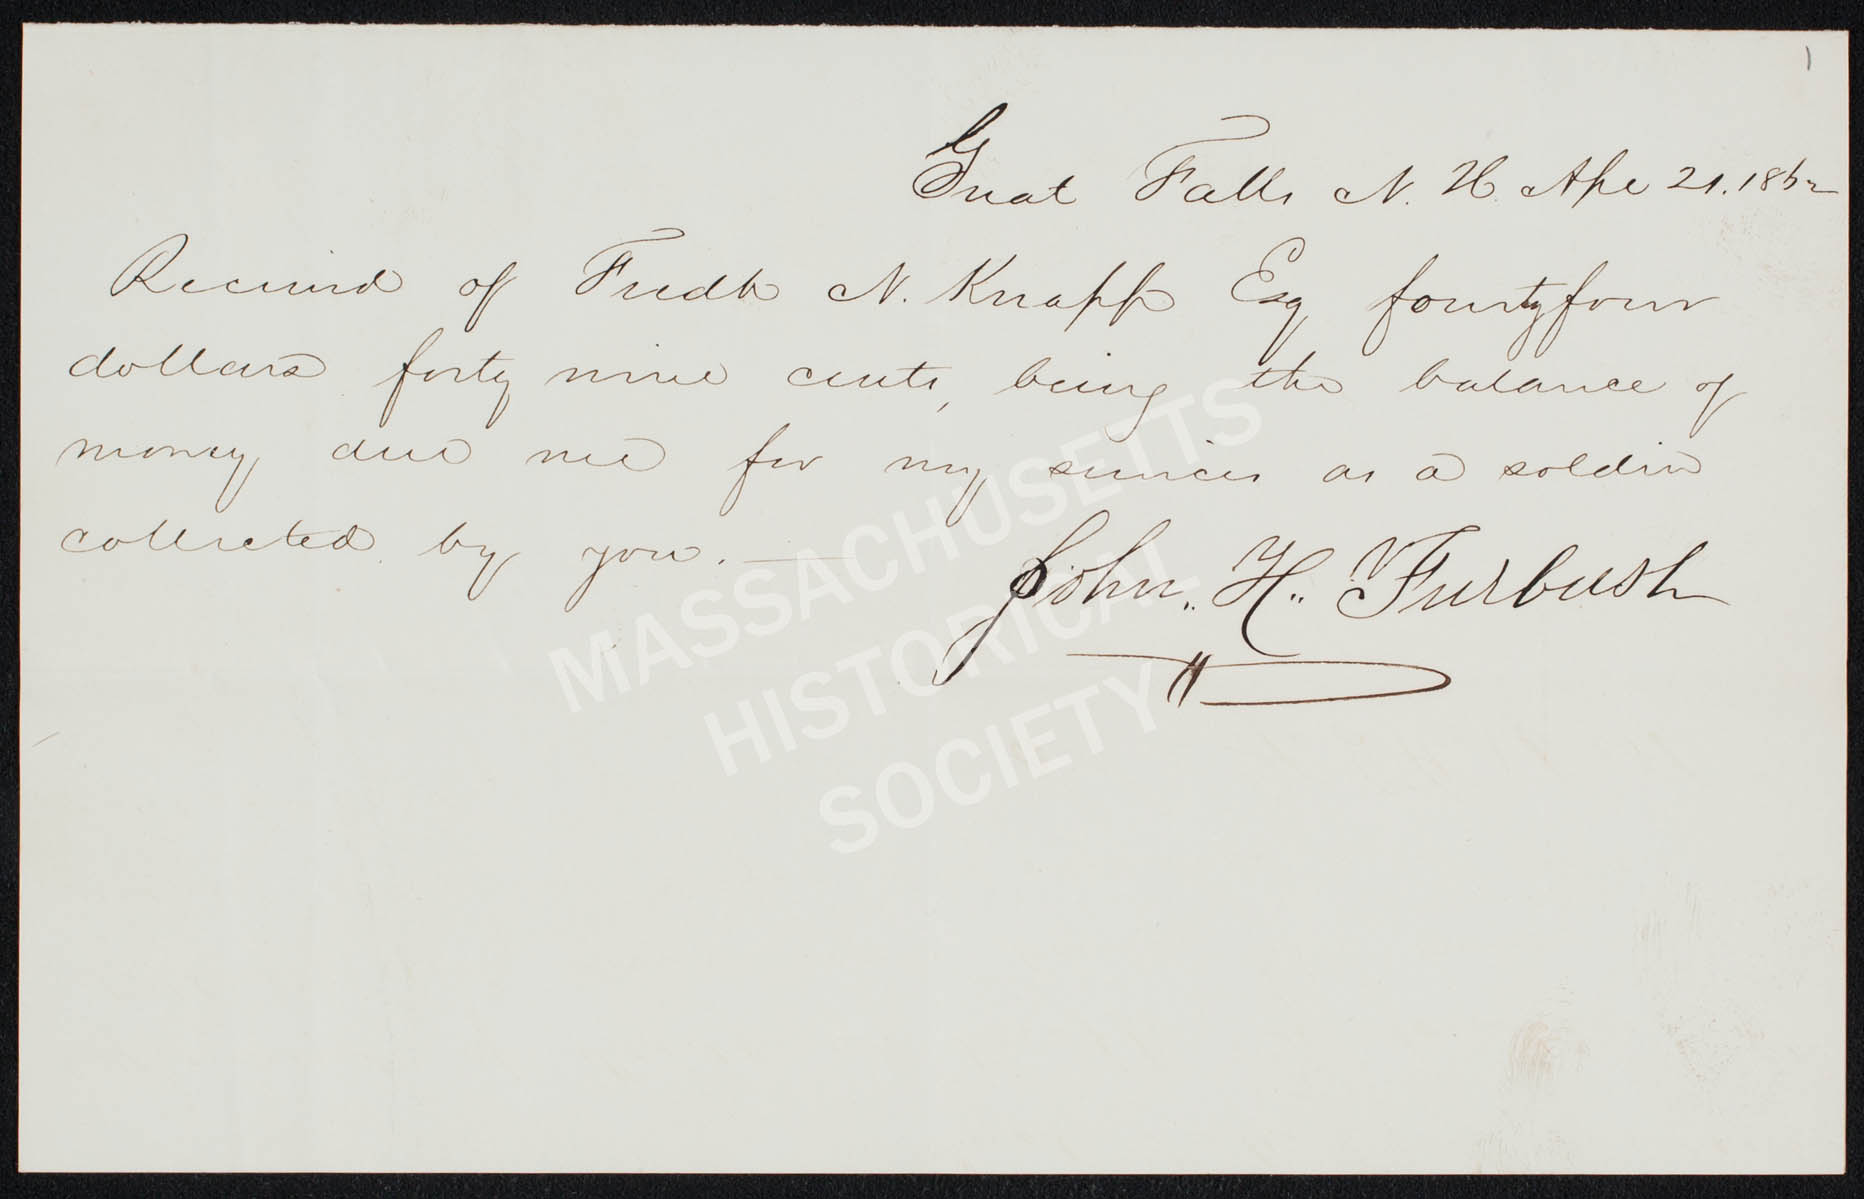 1
Great Falls N. H. Apr 21. 1862
Received of Fredk N. Knapp Esq fourtyfour
dollars forty nine cents, being the balance of
money due me for my services as a soldier
collected by you. —
John,, H,, Furbush
MASSACHUSETTS
HISTORICAL
SOCIETY